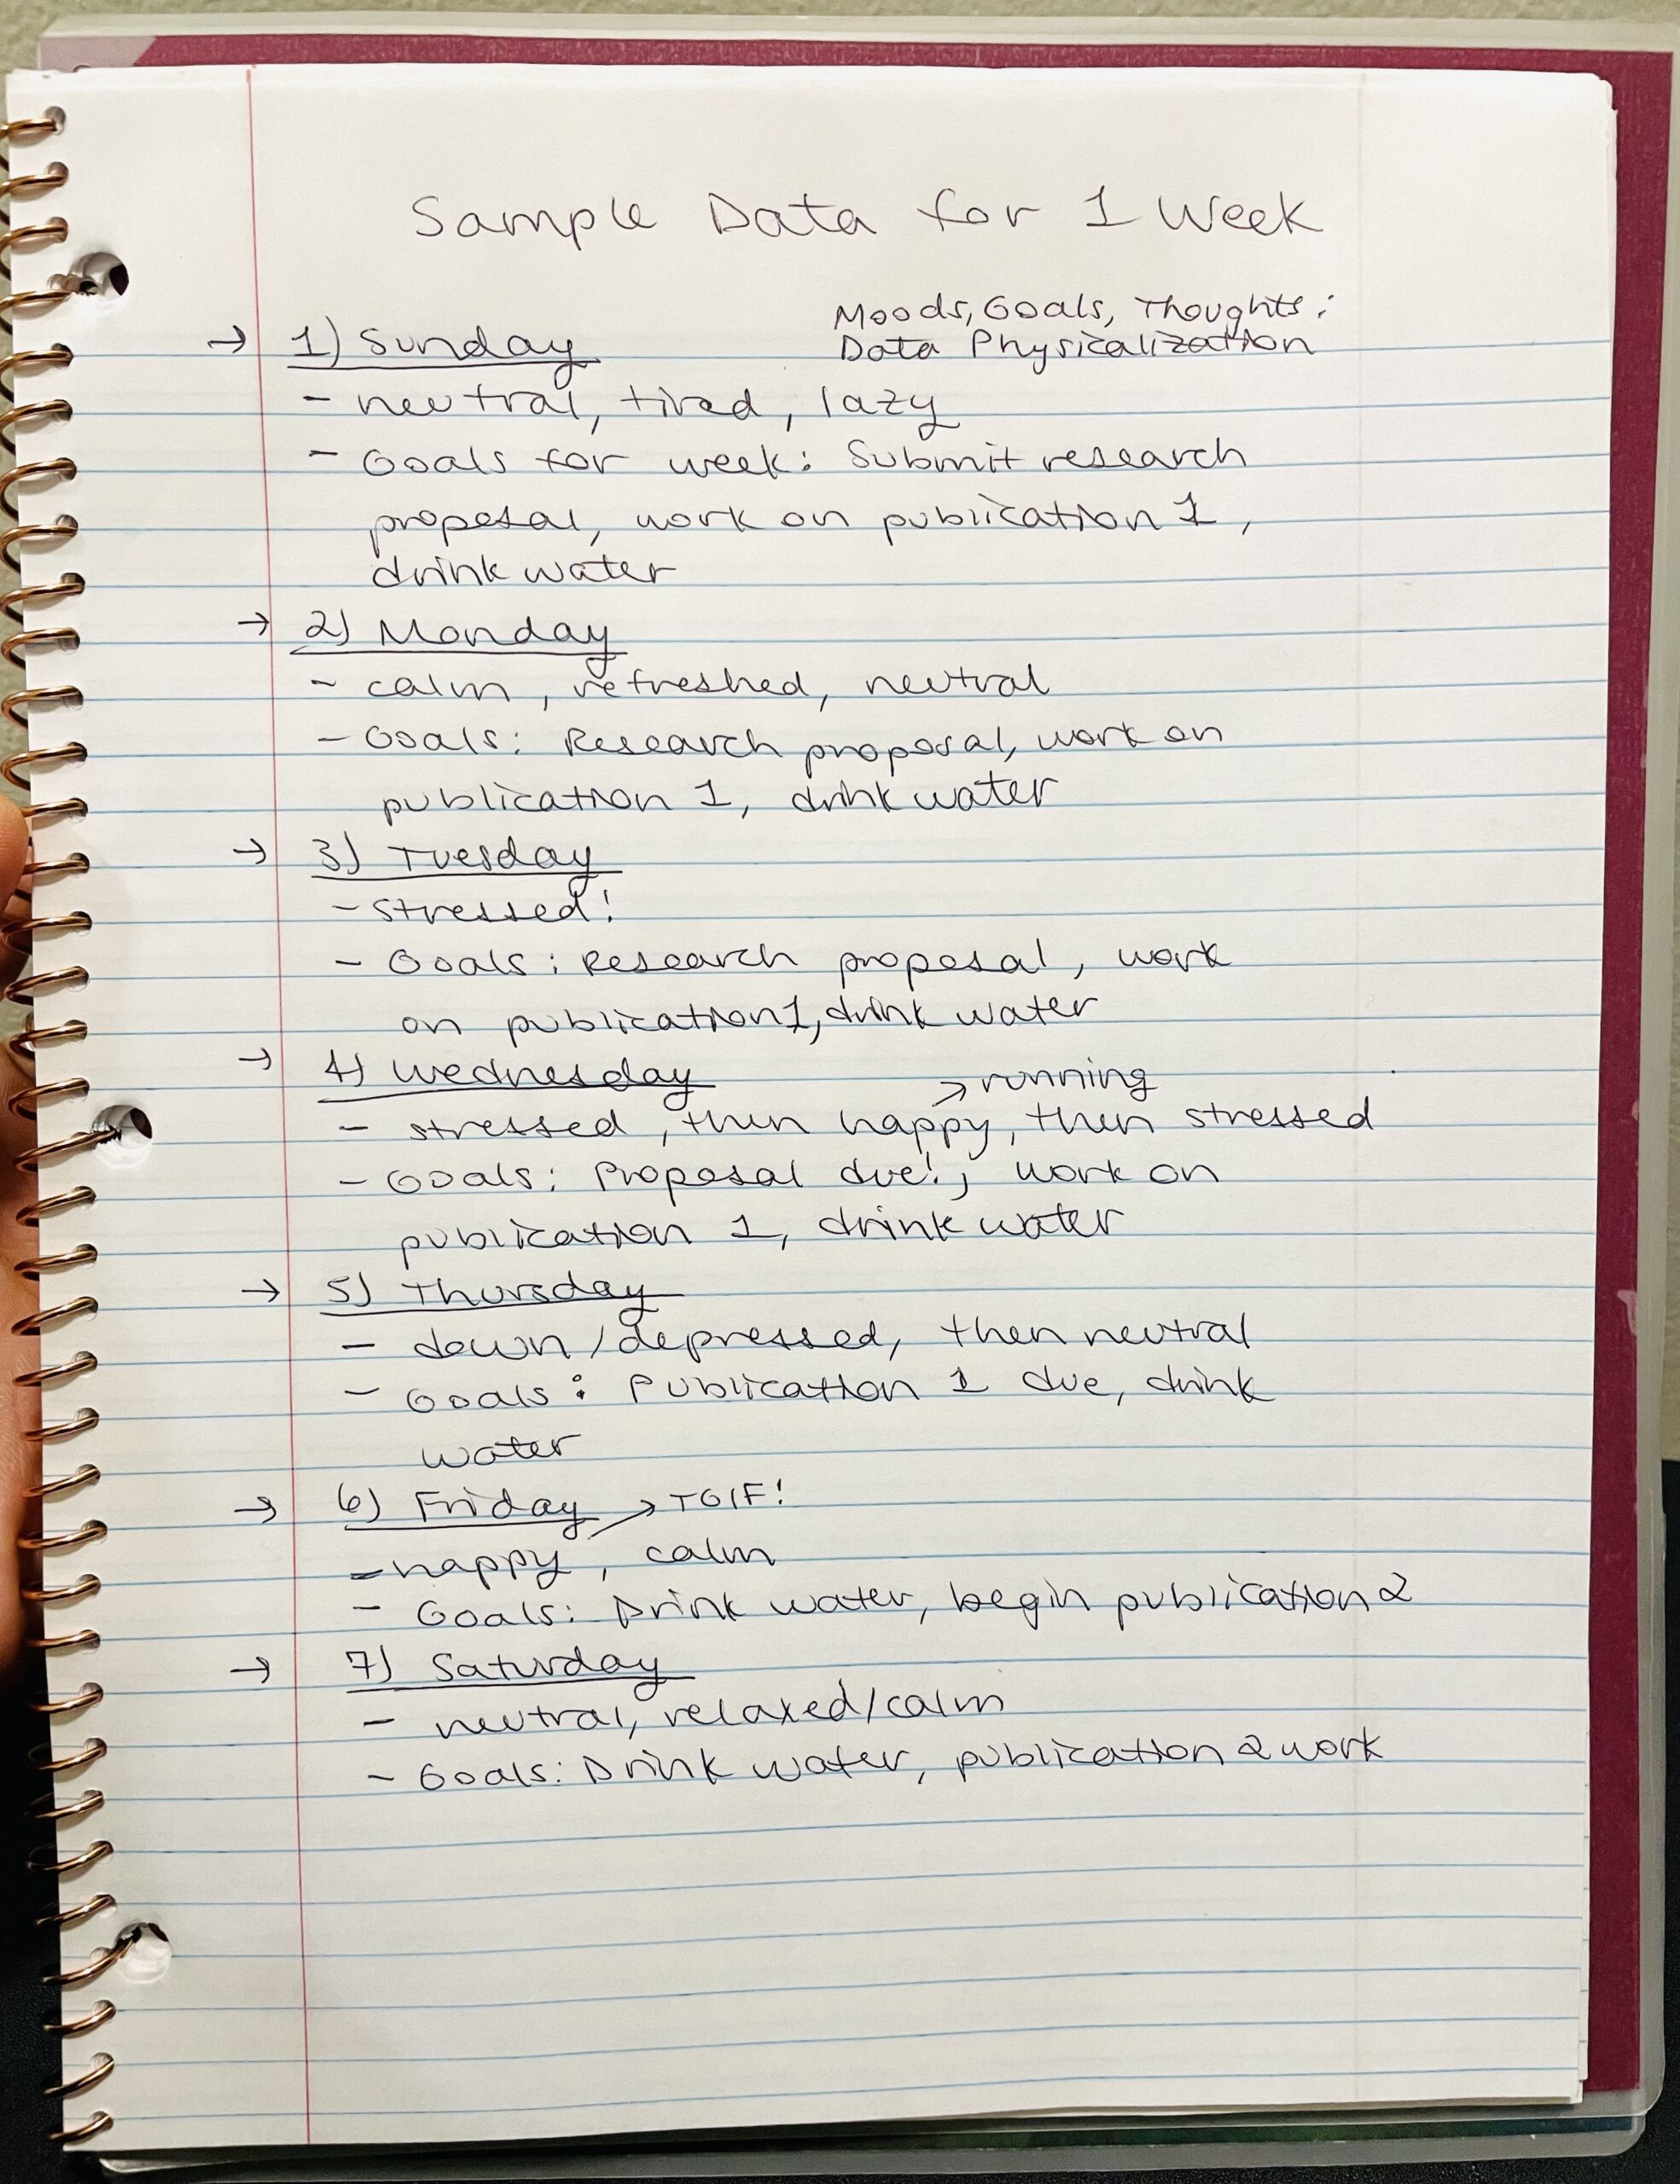 Sample Data for 1 Week
Moods, Goals, Thoughts:
Data Physicalization
→ 1) Sunday
- neutral, tired, lazy
- Goals for week: Submit research
proposal, work on publication 1,
drink water
→ 2) Monday
- calm, refreshed, neutral
- Goals: Research proposal, work on
publication 1, drink water
→ 3) Tuesday
- stressed!
- Goals: Research proposal, work
on publication 1, drink water
→ 4) Wednesday
→ running
- stressed, then happy, then stressed
- Goals: Proposal due!, work on
publication 1, drink water
→ 5) Thursday
- down/depressed, then neutral
- Goals: Publication 1 due, drink
water
→ 6) Friday → TGIF!
- happy, calm
- Goals: Drink water, begin publication 2
→ 7) Saturday
- neutral, relaxed/calm
- Goals: Drink water, publication 2 work